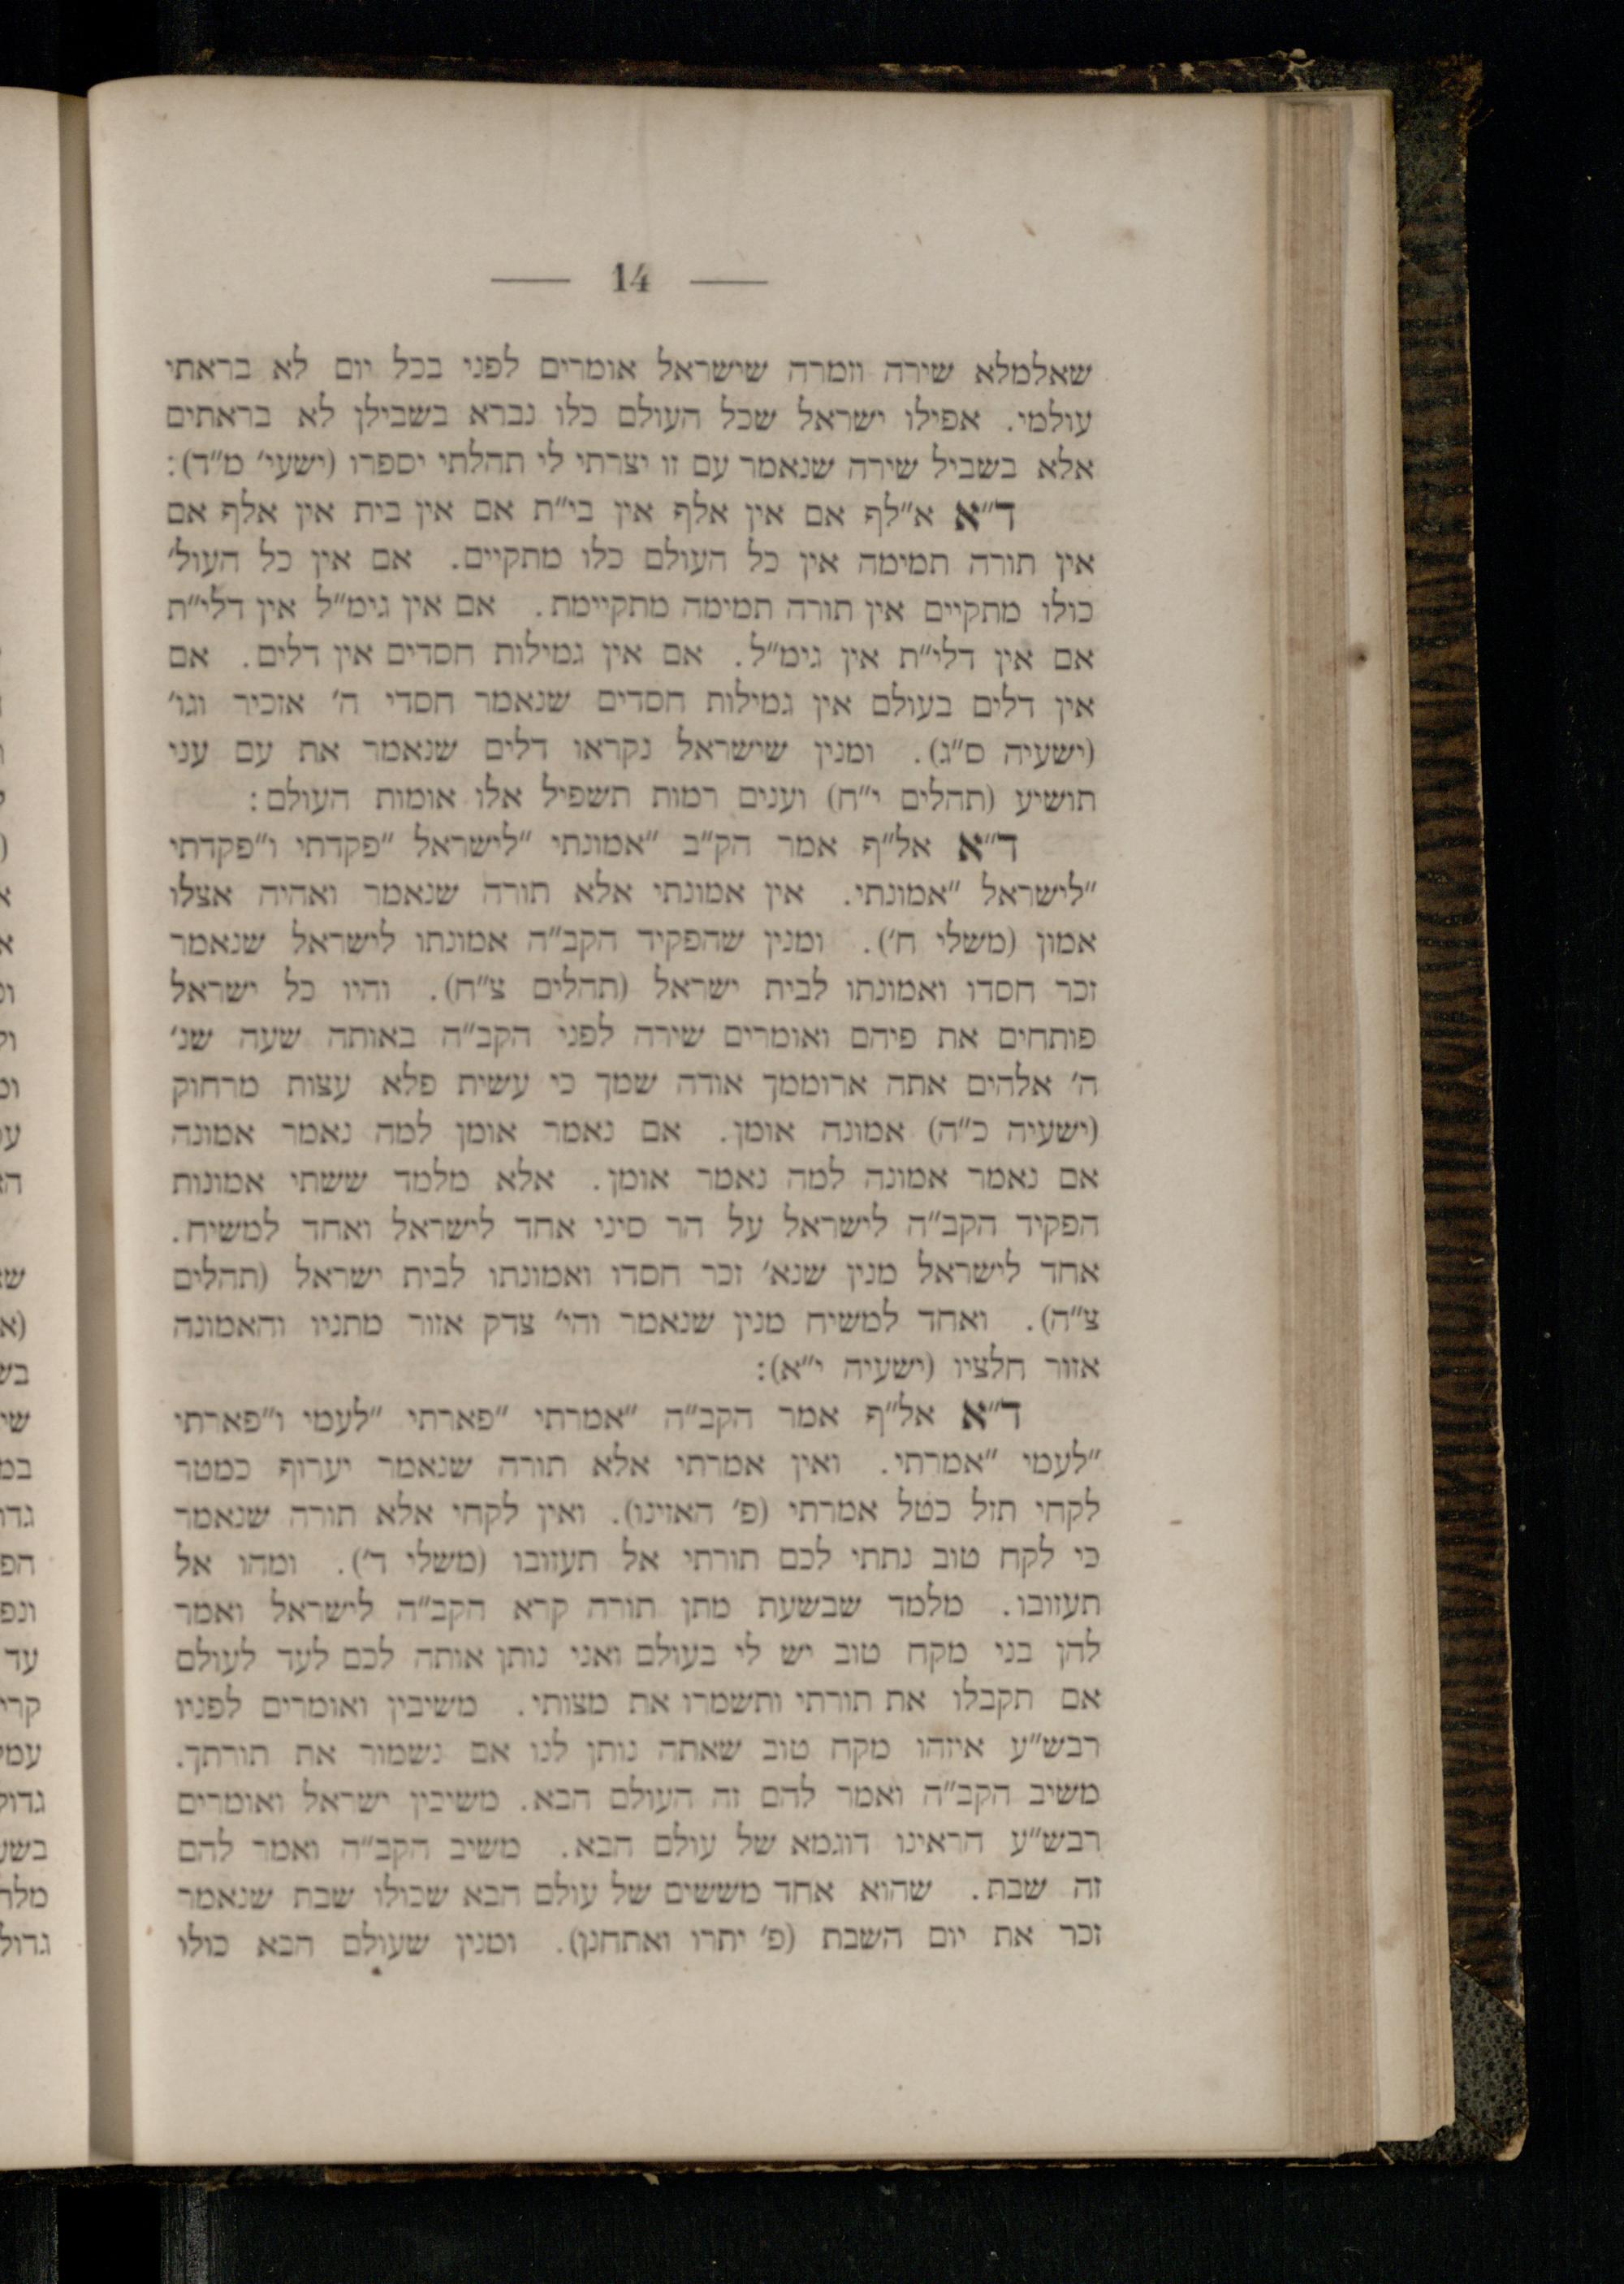 — 14 —
שאלמלא שירה וזמרה שישראל אומרים לפני בכל יום לא בראתי
עולמי. אפילו ישראל שכל העולם כלו נברא בשבילן לא בראתים
אלא בשביל שירה שנאמר עם זו יצרתי לי תהלתי יספרו (ישעי׳ מ״ד):
ד״א א״לף אם אין אלף אין בי״ת אם אין בית אין אלף אם
אין תורה תמימה אין כל העולם כלו מתקיים. אם אין כל העול׳
כולו מתקיים אין תורה תמימה מתקיימת. אם אין גימ״ל אין דלי״ת
אם אין דלי״ת אין גימ״ל. אם אין גמילות חסדים אין דלים. אם
אין דלים בעולם אין גמילות חסדים שנאמר חסדי ה׳ אזכיר וגו׳
(ישעיה ס״ג). ומנין שישראל נקראו דלים שנאמר את עם עני
תושיע (תהלים י״ח) וענים רמות תשפיל אלו אומות העולם:
ד״א אל״ף אמר הק״ב ״אמונתי ״לישראל ״פקדתי ו״פקדתי
״לישראל ״אמונתי. אין אמונתי אלא תורה שנאמר ואהיה אצלו
אמון (משלי ח׳). ומנין שהפקיד הקב״ה אמונתו לישראל שנאמר
זכר חסדו ואמונתו לבית ישראל (תהלים צ״ח). והיו כל ישראל
פותחים את פיהם ואומרים שירה לפני הקב״ה באותה שעה שנ׳
ה׳ אלהים אתה ארוממך אודה שמך כי עשית פלא עצות מרחוק
(ישעיה כ״ה) אמונה אומן. אם נאמר אומן למה נאמר אמונה
אם נאמר אמונה למה נאמר אומן. אלא מלמד ששתי אמונות
הפקיד הקב״ה לישראל על הר סיני אחד לישראל ואחד למשיח.
אחד לישראל מנין שנא׳ זכר חסדו ואמונתו לבית ישראל (תהלים
צ״ה). ואחד למשיח מנין שנאמר והי׳ צדק אזור מתניו והאמונה
אזור חלציו (ישעיה י״א):
ד״א אל״ף אמר הקב״ה ״אמרתי ״פארתי ״לעמי ו״פארתי
״לעמי ״אמרתי. ואין אמרתי אלא תורה שנאמר יערוף כמטר
לקחי תזל כטל אמרתי (פ׳ האזינו). ואין לקחי אלא תורה שנאמר
כי לקח טוב נתתי לכם תורתי אל תעזובו (משלי ד׳). ומהו אל
תעזובו. מלמד שבשעת מתן תורה קרא הקב״ה לישראל ואמר
להן בני מקח טוב יש לי בעולם ואני נותן אותה לכם לעד לעולם
אם תקבלו את תורתי ותשמרו את מצותי. משיבין ואומרים לפניו
רבש״ע איזהו מקח טוב שאתה נותן לנו אם נשמור את תורתך.
משיב הקב״ה ואמר להם זה העולם הבא. משיבין ישראל ואומרים
רבש״ע הראינו דוגמא של עולם הבא. משיב הקב״ה ואמר להם
זה שבת. שהוא אחד מששים של עולם הבא שכולו שבת שנאמר
זכר את יום השבת (פ׳ יתרו ואתחנן). ומנין שעולם הבא כולו